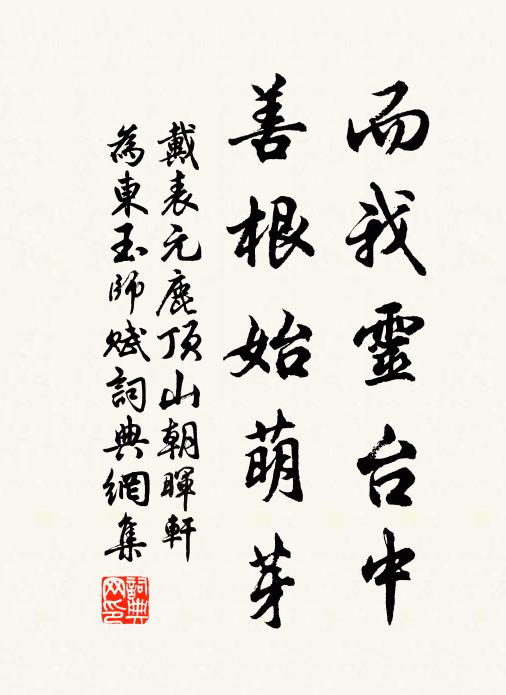 而我靈台中
善根始萌芽
戴表元鹿頂山朝暉軒
為東玉師賦詞典網集
詞典网印